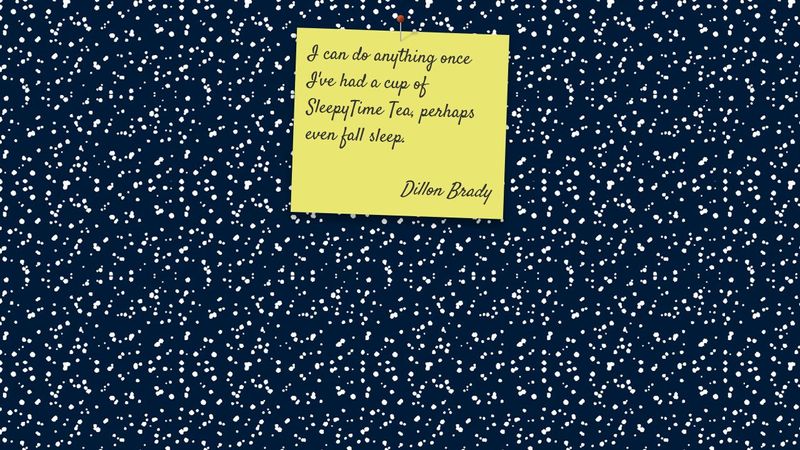 I can do anything once
I've had a cup of
SleepyTime Tea, perhaps
even fall sleep.
Dillon Brady